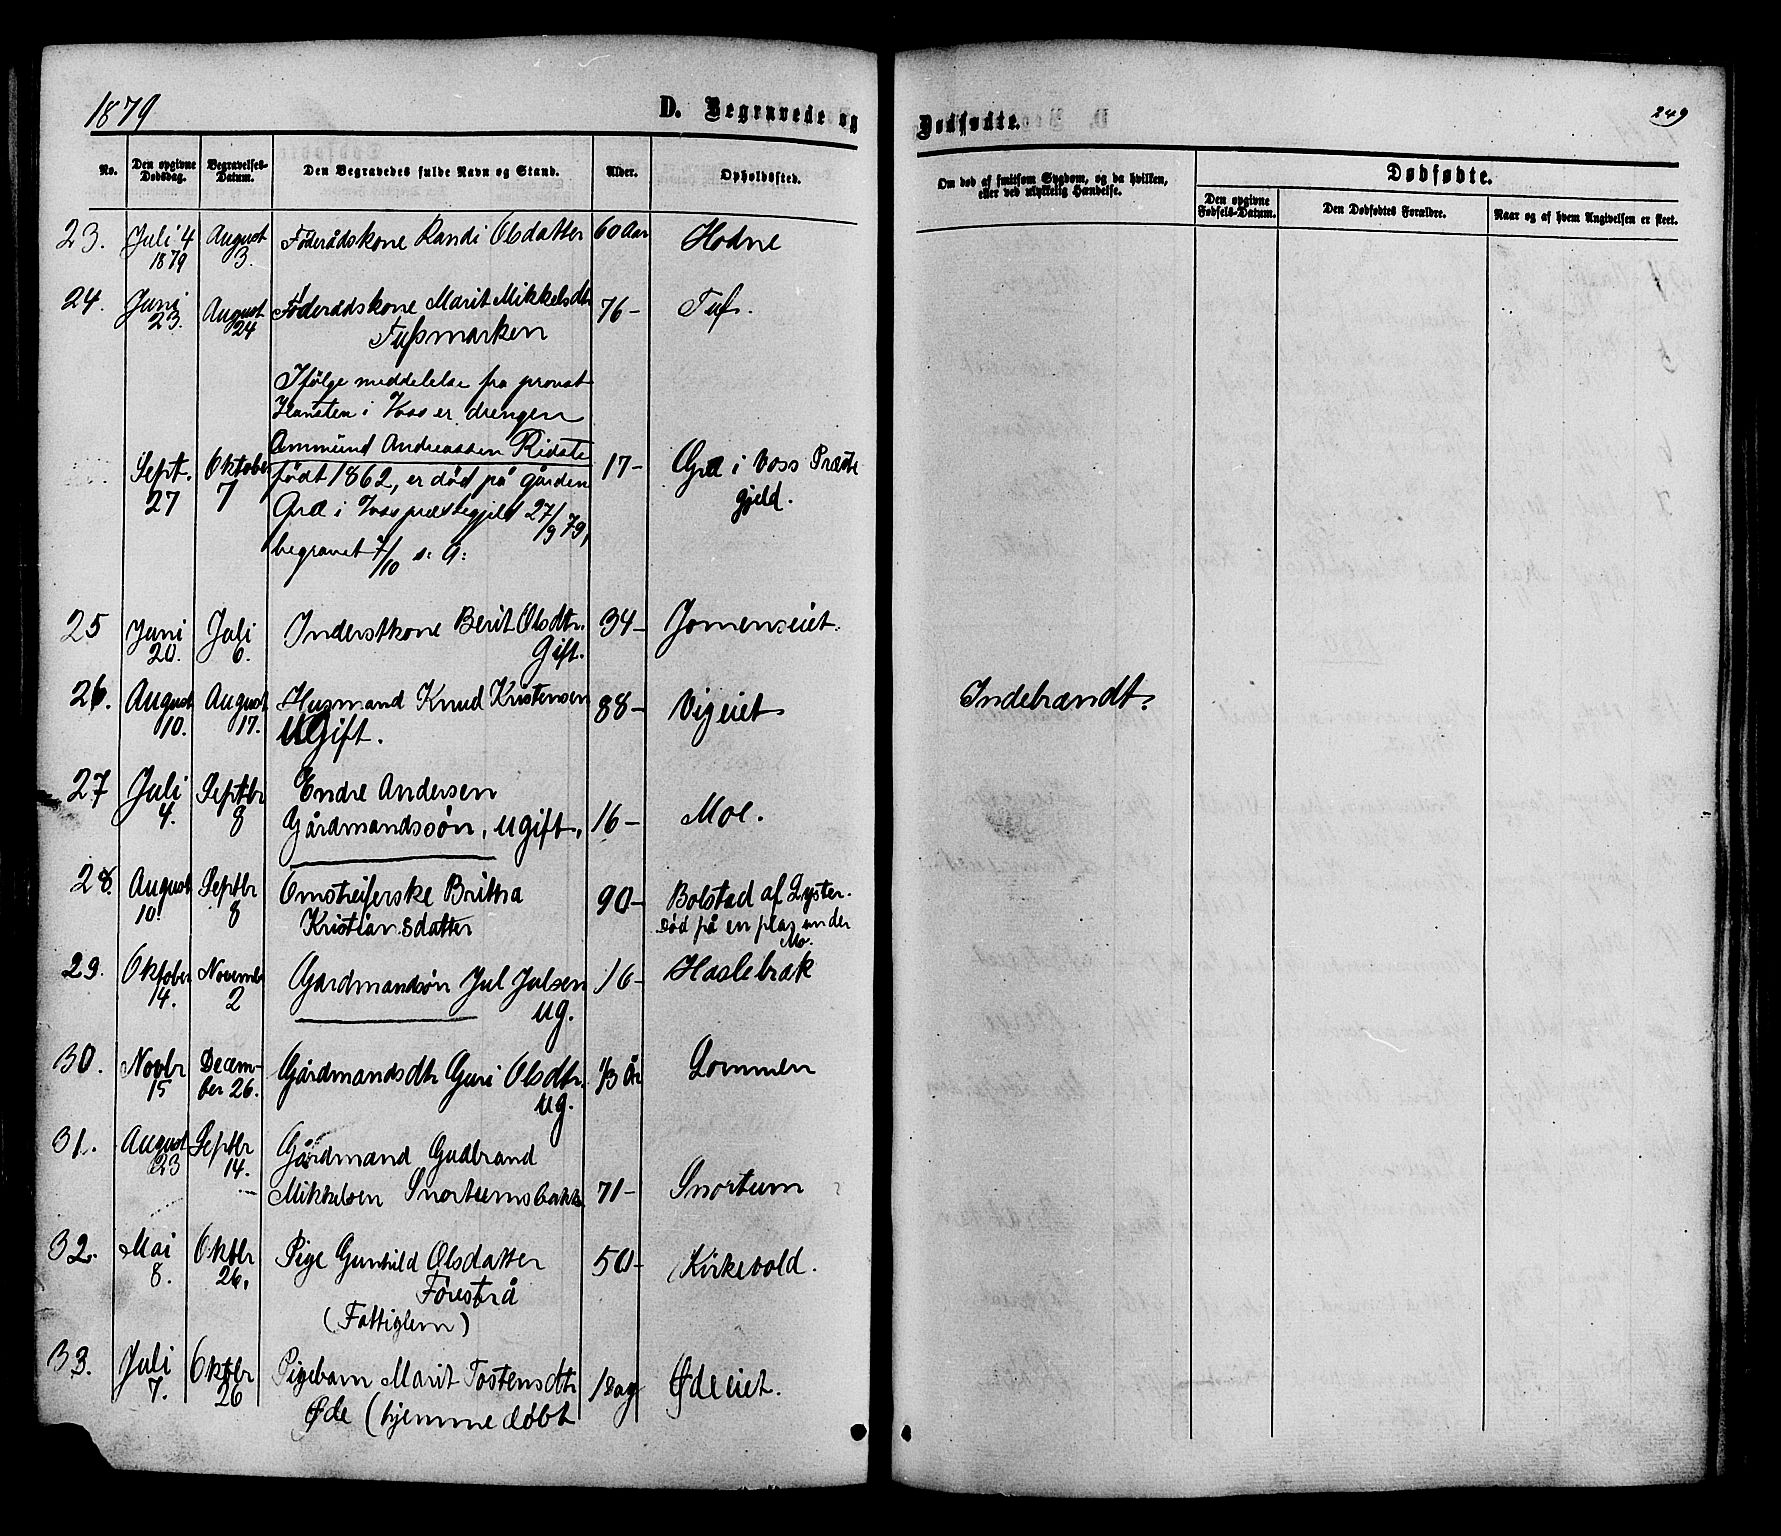 1879
D. Begravede og Dødfødte.
249
No.
Den opgivne Dødsdag.
Begravelses-Datum.
Den Begravedes fulde Navn og Stand.
Alder.
Opholdssted.
Om død af smitsom Sygdom, og da hvilken, eller ved ulykkelig Hændelse.
Dødfødte.
Den opgivne Fødsels-Datum.
Den Dødfødtes Forældre.
Naar og af hvem Angivelsen er skeet.
23. Juli 4 August Føderådskone Randi Olsdatter 60 Aar Hodne
1879 3.
24. Juni August Føderådskone Marit Mikkelsdtr 76 - Tuf.
23. 24 Tufsmarken
Ifølge meddelelse fra provst
i Voss er drengen
Ammund Andreassen Ridste
Sept. Oktober født 1862, er død på gården 17 - Græ i Voss Præste
27 7 Græ i Voss præstegjeld 27/9 79, gjeld.
begravet 7/10 s: A:
25 Juni Juli Inderstkone Berit Olsdtr. 34 - Jomenseiet.
20. 6. Gift.
26. August August Husmand Knud Kristensen 88 - Vigeiet Indebrændt.
10. 17. UGift.
27 Juli Septbr Endre Andersen
4. 8 Gårdmandssøn, ugift, 16 - Moe.
28. August Septbr Omstreiferske Brittha 90 - Bolstad af Lyster.
10. 8 Kristiansdatter død på en plas under
Mo.
29. Oktober November Gårdmandsøn Jul Julsen 16 - Haslebrek
14. 2 ug.
30. Novbr Decem- Gårdmandsdtr Guri Olsdtr. 1/3 År Lommen
15 ber 26. ug.
31. August Septbr Gårdmand Gudbrand
23 14. Mikkelsen Snortumsbakke 71 - Snortum
32. Mai Oktbr Pige Gunhild Olsdatter 50 - Kirkevold.
8. 26. Forestrå
(Fattiglem)
33. Juli Oktbr Pigebarn Marit Tostensdtr 1 Dag Ødeeiet.
7. 26 Øde (hjemmedøbt